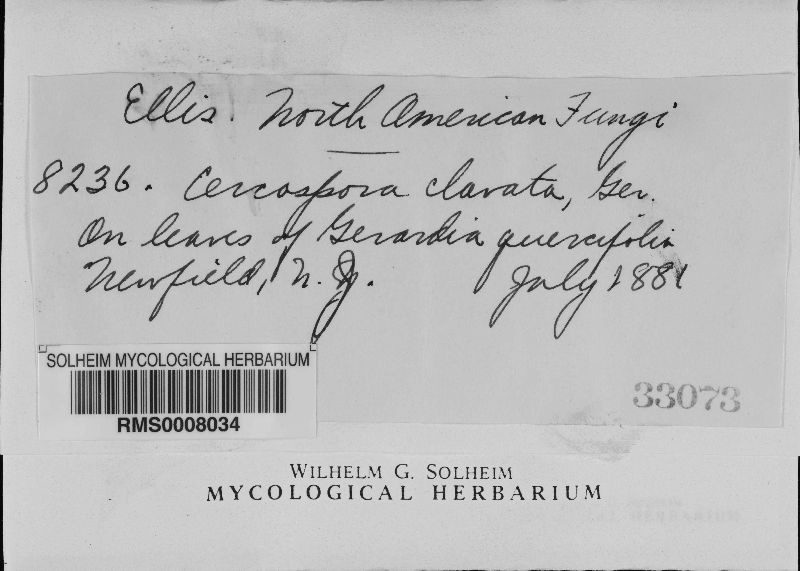 Ellis. North American Fungi
8236. Cercospora clavata, Ger.
On leaves of Gerardia quercifolia
Newfield, N.J. July 1881
SOLHEIM MYCOLOGICAL HERBARIUM
RMS0008034
33073
WILHELM G. SOLHEIM
MYCOLOGICAL HERBARIUM